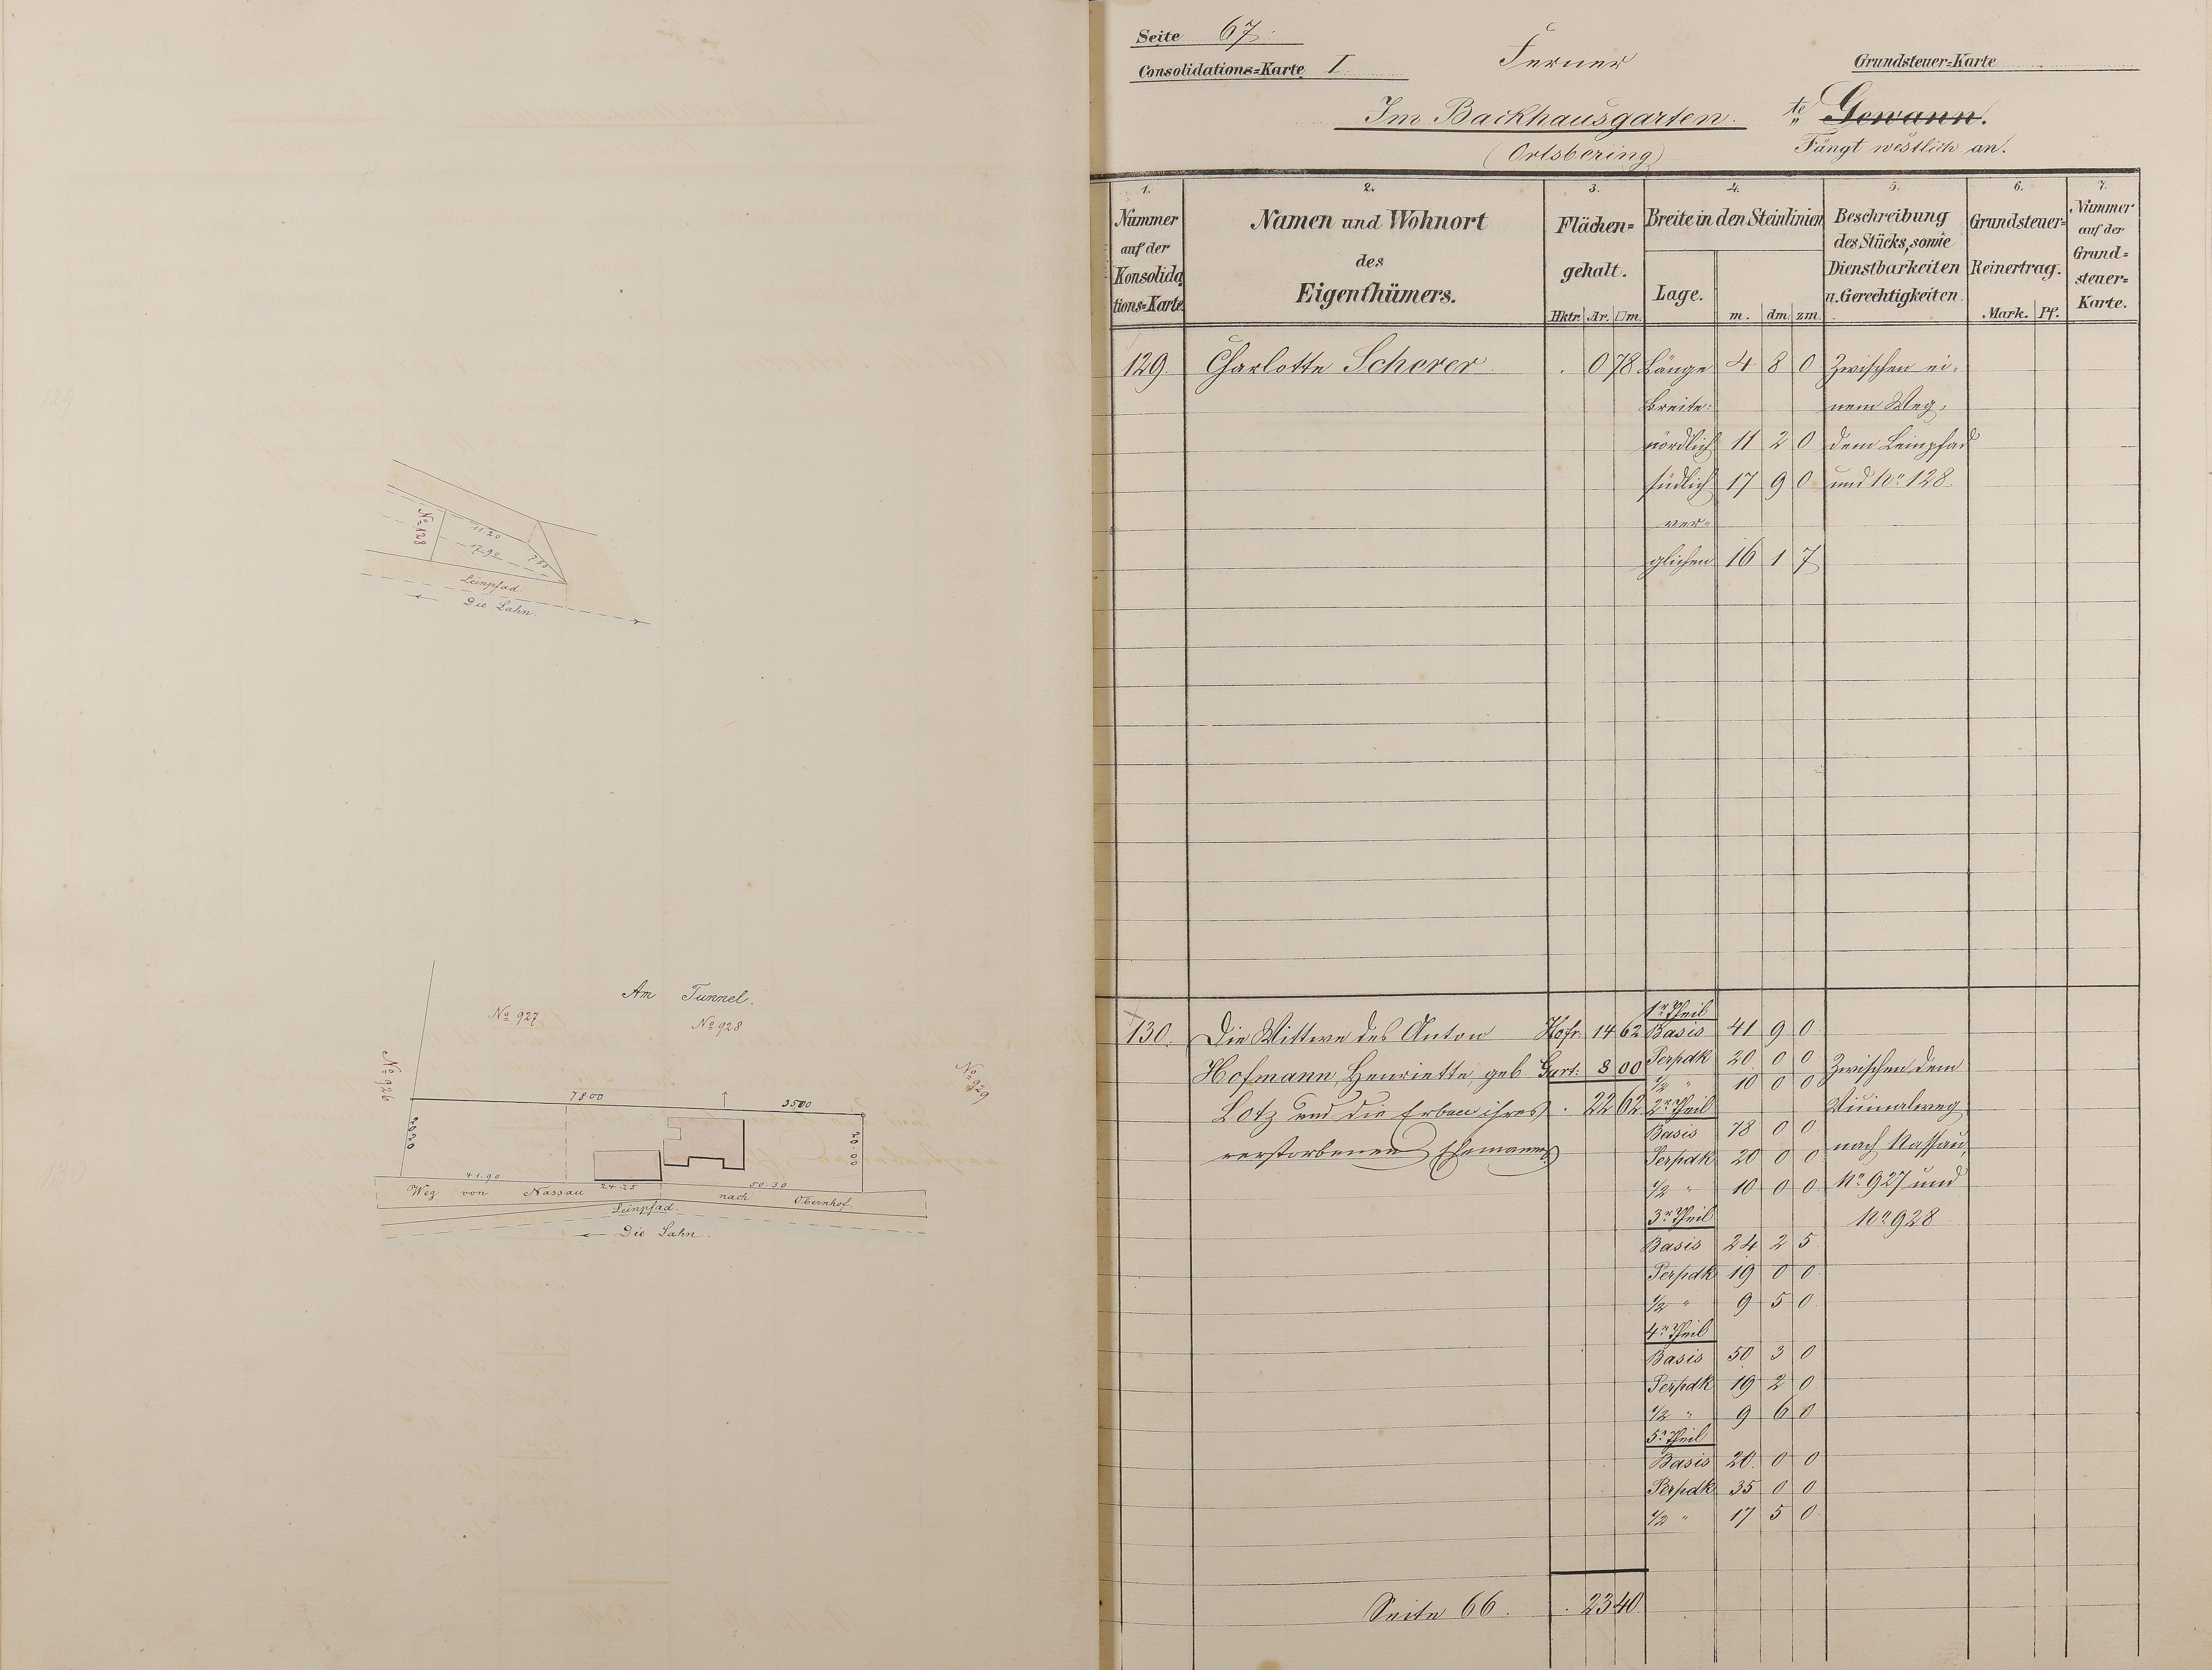 No 128
11.20
17.90
7.30
Leinpfad
Die Lahn.
Am Tunnel.
No 927
No 928
No 926
No 929
78 00
35 00
20.20
20.00
41.90
24.25
50.30
Weg von Nassau nach Obernhof.
Leinpfad.
Die Lahn.
Seite 67.
Consolidations=Karte I.
Ferner
Grundsteuer=Karte
Im Backhausgarten. te Gewann.
(Ortsbering)
Fängt westlich an.
1. 2. 3. 4. 5. 6. 7.
Nummer auf der Konsolidations=Karte
Namen und Wohnort des Eigenthümers.
Flächen=gehalt.
Hktr. Ar. □m.
Breite in den Steinlinien
Lage. m. dm zm.
Beschreibung des Stücks, sowie Dienstbarkeiten u. Gerechtigkeiten.
Grundsteuer=Reinertrag.
Mark. Pf.
Nummer auf der Grund=steuer=Karte.
129. Charlotte Scherer . 0 78 Länge 4 8 0 Zwischen ei-
Breite: nem Weg,
nördlich 11 2 0 dem Leinpfad
südlich 17 9 0 und No 128.
ver-
glichen 16 1 7
1r Theil
130. Die Wittwe des Anton Hofr. 14 62 Basis 41 9 0
Hofmann, Henriette geb. Gart: 8 00 Perpdk 20 0 0 Zwischen dem
1/2 " 10 0 0
Lotz und die Erben ihres . 22 62 2r Theil Vizinalweg
Basis 78 0 0
verstorbenen Ehemannes Perpdk 20 0 0 nach Nassau,
1/2 " 10 0 0 No 927 und
3r Theil No 928
Basis 24 2 5
Perpdk 19 0 0
1/2 " 9 5 0
4r Theil
Basis 50 3 0
Perpdk 19 2 0
1/2 " 9 6 0
5r Theil
Basis 20 0 0
Perpdk 35 0 0
1/2 " 17 5 0
Seite 66. . 23 40